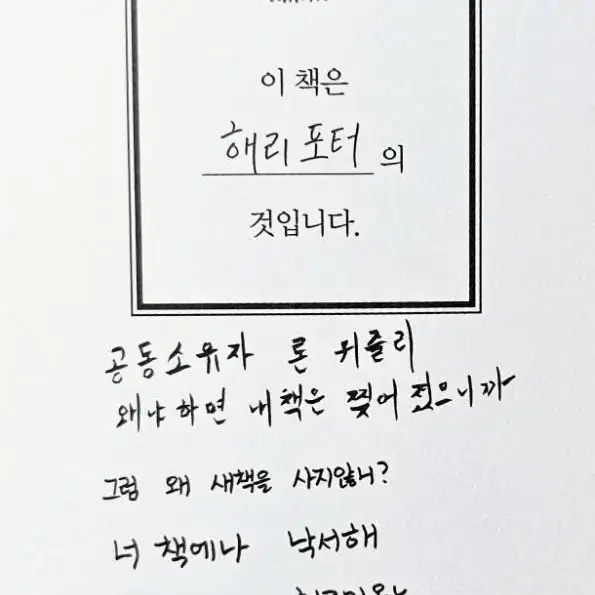 이 책은
해리 포터 의
것입니다.
공동소유자 론 위즐리
왜냐하면 내책은 찢어 졌으니까
그럼 왜 새책을 사지않니?
너 책에나 낙서해